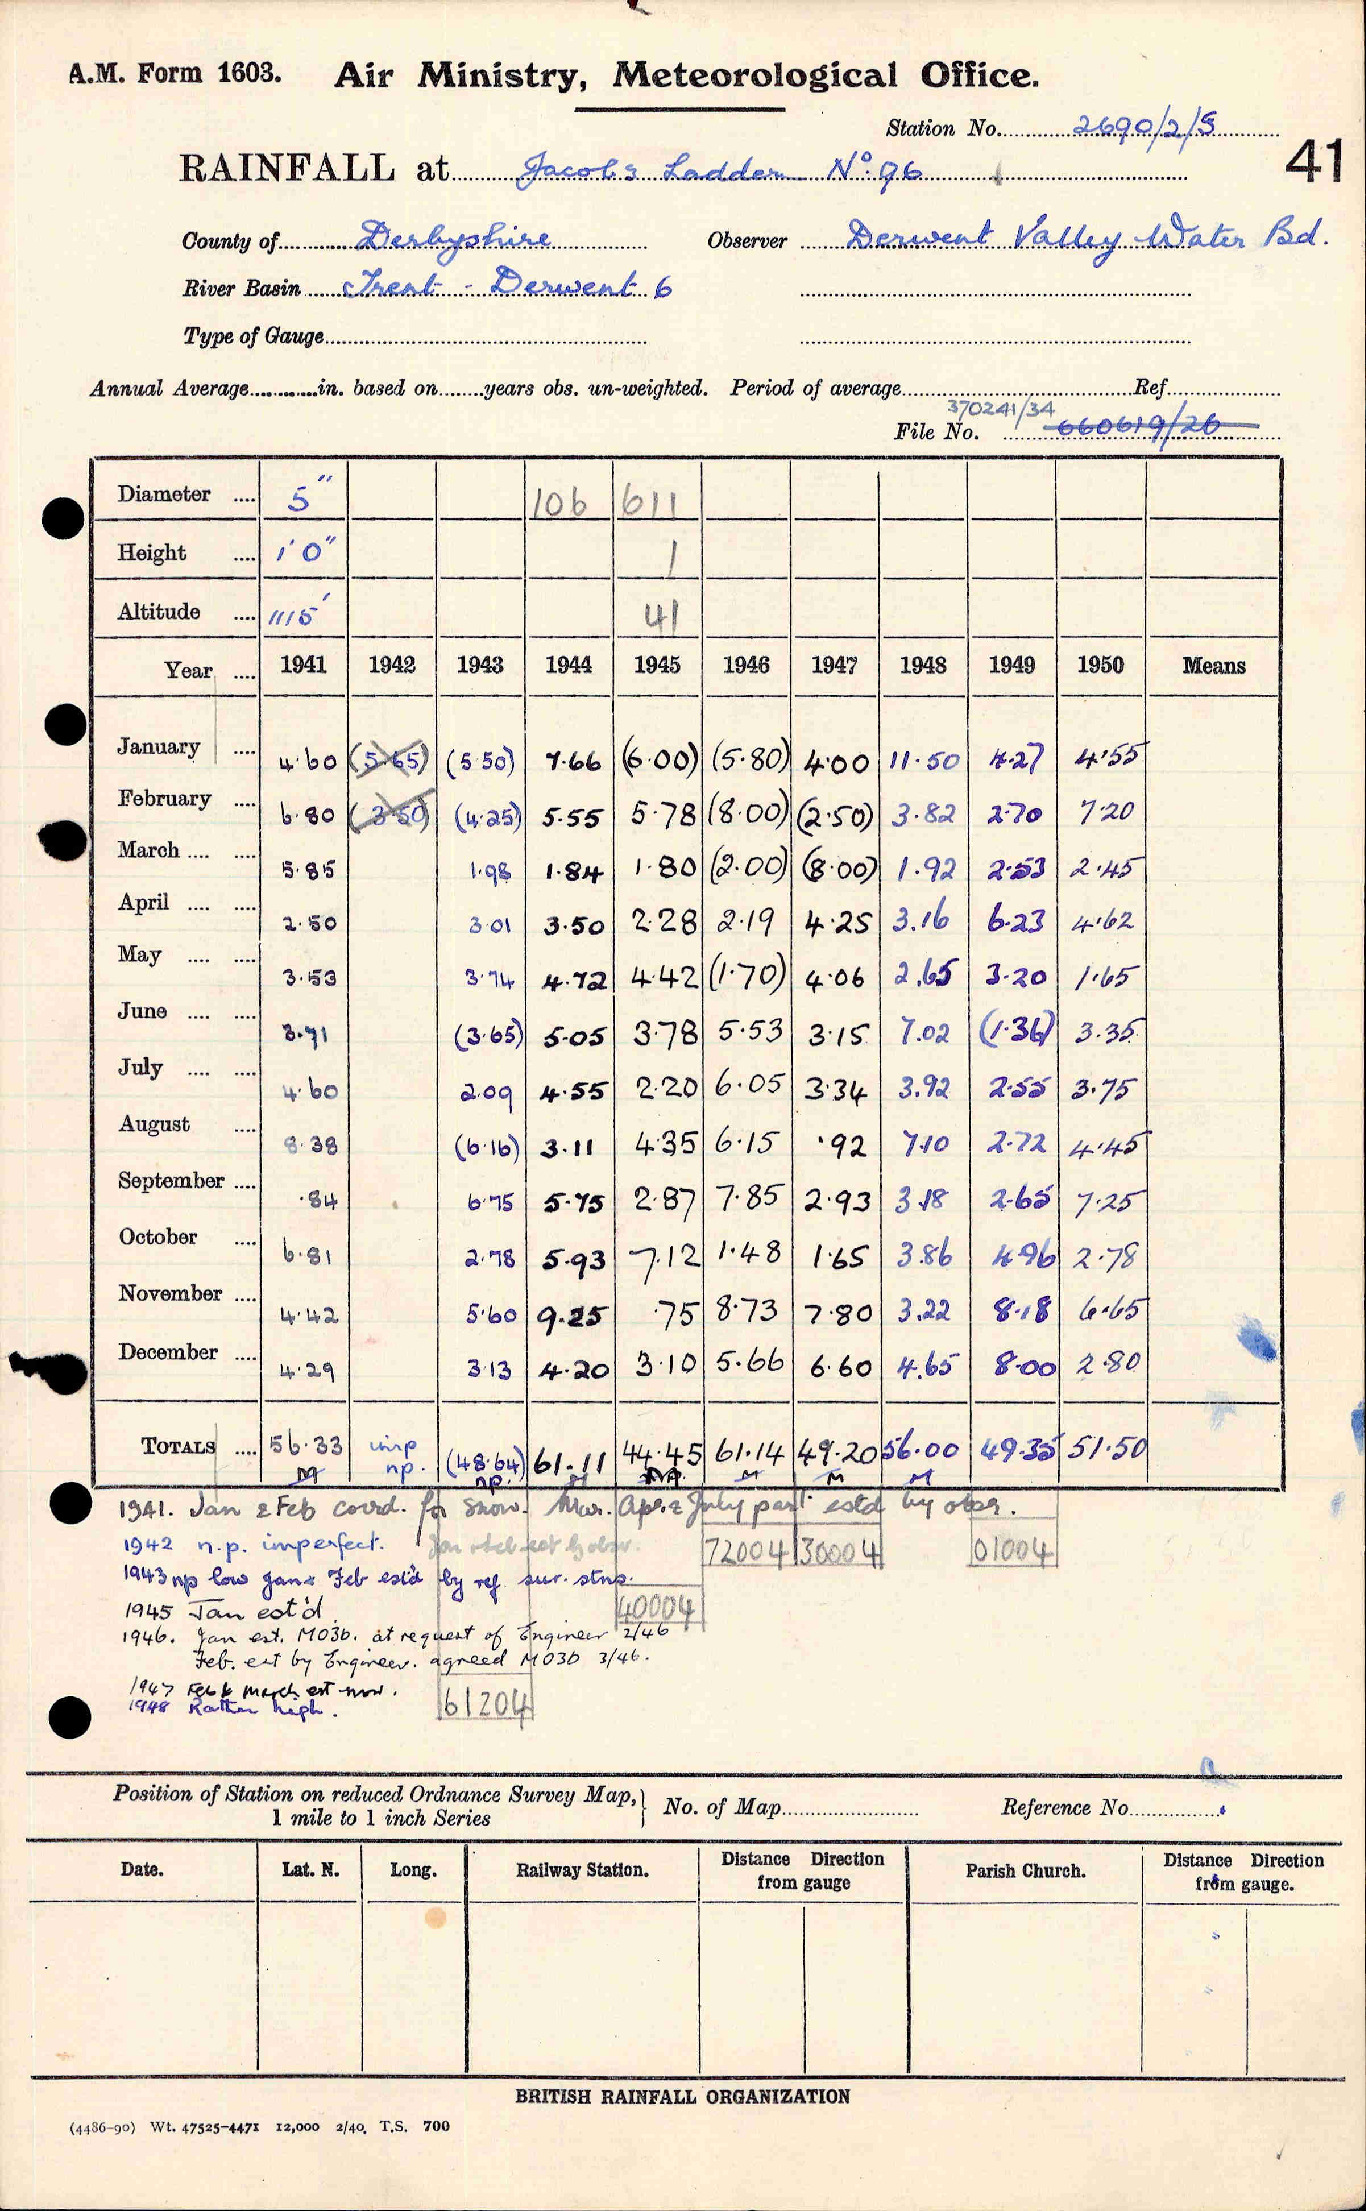 A.M. Form 1603. Air Ministry, Meteorological Office.
Station No. 2690/2/5
41
RAINFALL at Jacob's Ladder No. 96
County of Derbyshire Observer Derwent Valley Water Bd.
River Basin Trent - Derwent 6
Type of Gauge
Annual Average in. based on years obs. un-weighted. Period of average Ref.
370241/34
File No. 660619/26
Diameter .... 5" 106 611
Height .... 1'0" 1
Altitude .... 1115' 41
Year .... 1941 1942 1943 1944 1945 1946 1947 1948 1949 1950 Means
January .... 4.60 (5.65) (5.50) 7.66 (6.00) (5.80) 4.00 11.50 4.27 4.55
February .... 6.80 (3.50) (4.25) 5.55 5.78 (8.00) (2.50) 3.82 2.70 7.20
March .... .... 5.85 1.98 1.84 1.80 (2.00) (8.00) 1.92 2.53 2.45
April .... .... 2.50 3.01 3.50 2.28 2.19 4.25 3.16 6.23 4.62
May .... .... 3.53 3.74 4.72 4.42 (1.70) 4.06 2.65 3.20 1.65
June .... .... 3.71 (3.65) 5.05 3.78 5.53 3.15 7.02 (1.36) 3.35
July .... .... 4.60 2.09 4.55 2.20 6.05 3.34 3.92 2.55 3.75
August .... 8.38 (6.16) 3.11 4.35 6.15 .92 7.10 2.72 4.45
September .... .84 6.75 5.75 2.87 7.85 2.93 3.18 2.65 7.25
October .... 6.81 2.78 5.93 7.12 1.48 1.65 3.86 4.96 2.78
November .... 4.42 5.60 9.25 .75 8.73 7.80 3.22 8.18 6.65
December .... 4.29 3.13 4.20 3.10 5.66 6.60 4.65 8.00 2.80
TOTALS .... 56.33 imp (48.64) 61.11 44.45 61.14 49.20 56.00 49.35 51.50
M np. np. M M M M
1941. Jan & Feb corrd. for snow. Mar. Apr. & July part estd by obsr.
1942 n.p. imperfect. Jan & Feb est by obsr. 72004 30004 01004
1943 np low Jan & Feb estd by ref. sur. stns.
1945 Jan est'd. 40004
1946. Jan est. M03b. at request of Engineer 2/46
Feb. est by Engineer. agreed M03b 3/46.
1947 Feb & March est now.
1948 Rather high. 61204
Position of Station on reduced Ordnance Survey Map, 1 mile to 1 inch Series } No. of Map Reference No.
Date. Lat. N. Long. Railway Station. Distance Direction from gauge Parish Church. Distance Direction from gauge.
BRITISH RAINFALL ORGANIZATION
(4486-90) Wt. 47525-4471 12,000 2/40. T.S. 700